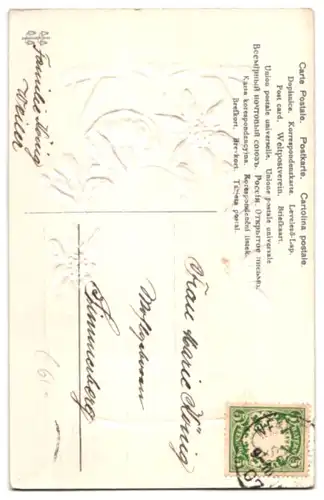 Carte Postale. Postkarte. Cartolina postale
Dopisnice. Korrespondenzkarte. Levelező-Lap.
Post card. Weltpostverein. Briefkaart.
Union postale universelle. Unione postale universale
Всемірный почтовый союзъ. Россія. Открытое письмо.
Karta korespondencyjna. Korespondenční lístek.
Brefkort. Brevkort. Tarjeta postal.
Familie König
Weiler
Frau Marie König
Wohlgeboren
Simmerberg